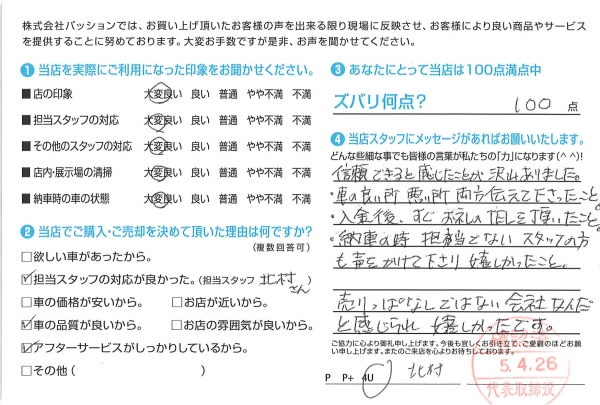 株式会社パッションでは、お買い上げ頂いたお客様の声を出来る限り現場に反映させ、お客様により良い商品やサービス
を提供することに努めております。大変お手数ですが是非、お声を聞かせてください。
❶ 当店を実際にご利用になった印象をお聞かせください。
■店の印象 大変良い 良い 普通 やや不満 不満
■担当スタッフの対応 大変良い 良い 普通 やや不満 不満
■その他のスタッフの対応 大変良い 良い 普通 やや不満 不満
■店内・展示場の清掃 大変良い 良い 普通 やや不満 不満
■納車時の車の状態 大変良い 良い 普通 やや不満 不満
❷ 当店でご購入・ご売却を決めて頂いた理由は何ですか?
(複数回答可)
□欲しい車があったから。
☑担当スタッフの対応が良かった。(担当スタッフ 北村さん)
□車の価格が安いから。 □お店が近いから。
☑車の品質が良いから。 □お店の雰囲気が良いから。
☑アフターサービスがしっかりしているから。
□その他( )
❸ あなたにとって当店は100点満点中
ズバリ何点? 100 点
❹ 当店スタッフにメッセージがあればお願いいたします。
どんな些細な事でも皆様の言葉が私たちの「力」になります(^^)!
信頼できると感じたことが沢山ありました。
・車の良い所 悪い所 両方伝えて下さったこと。
・入金後、すぐ お礼の 頂いたこと。
・納車の時 担当でない スタッフの方
も声をかけて下さり 嬉しかったこと。
売りっぱなしではない 会社なんだ
と感じられ 嬉しかったです。
ご協力に心より御礼申し上げます。今後も宜しくお引き立て、ご愛顧のほどお願
い申し上げます。またのご来店を心よりお待ちしております。
P P+ 4U 北村
5.4.26
代表取締役